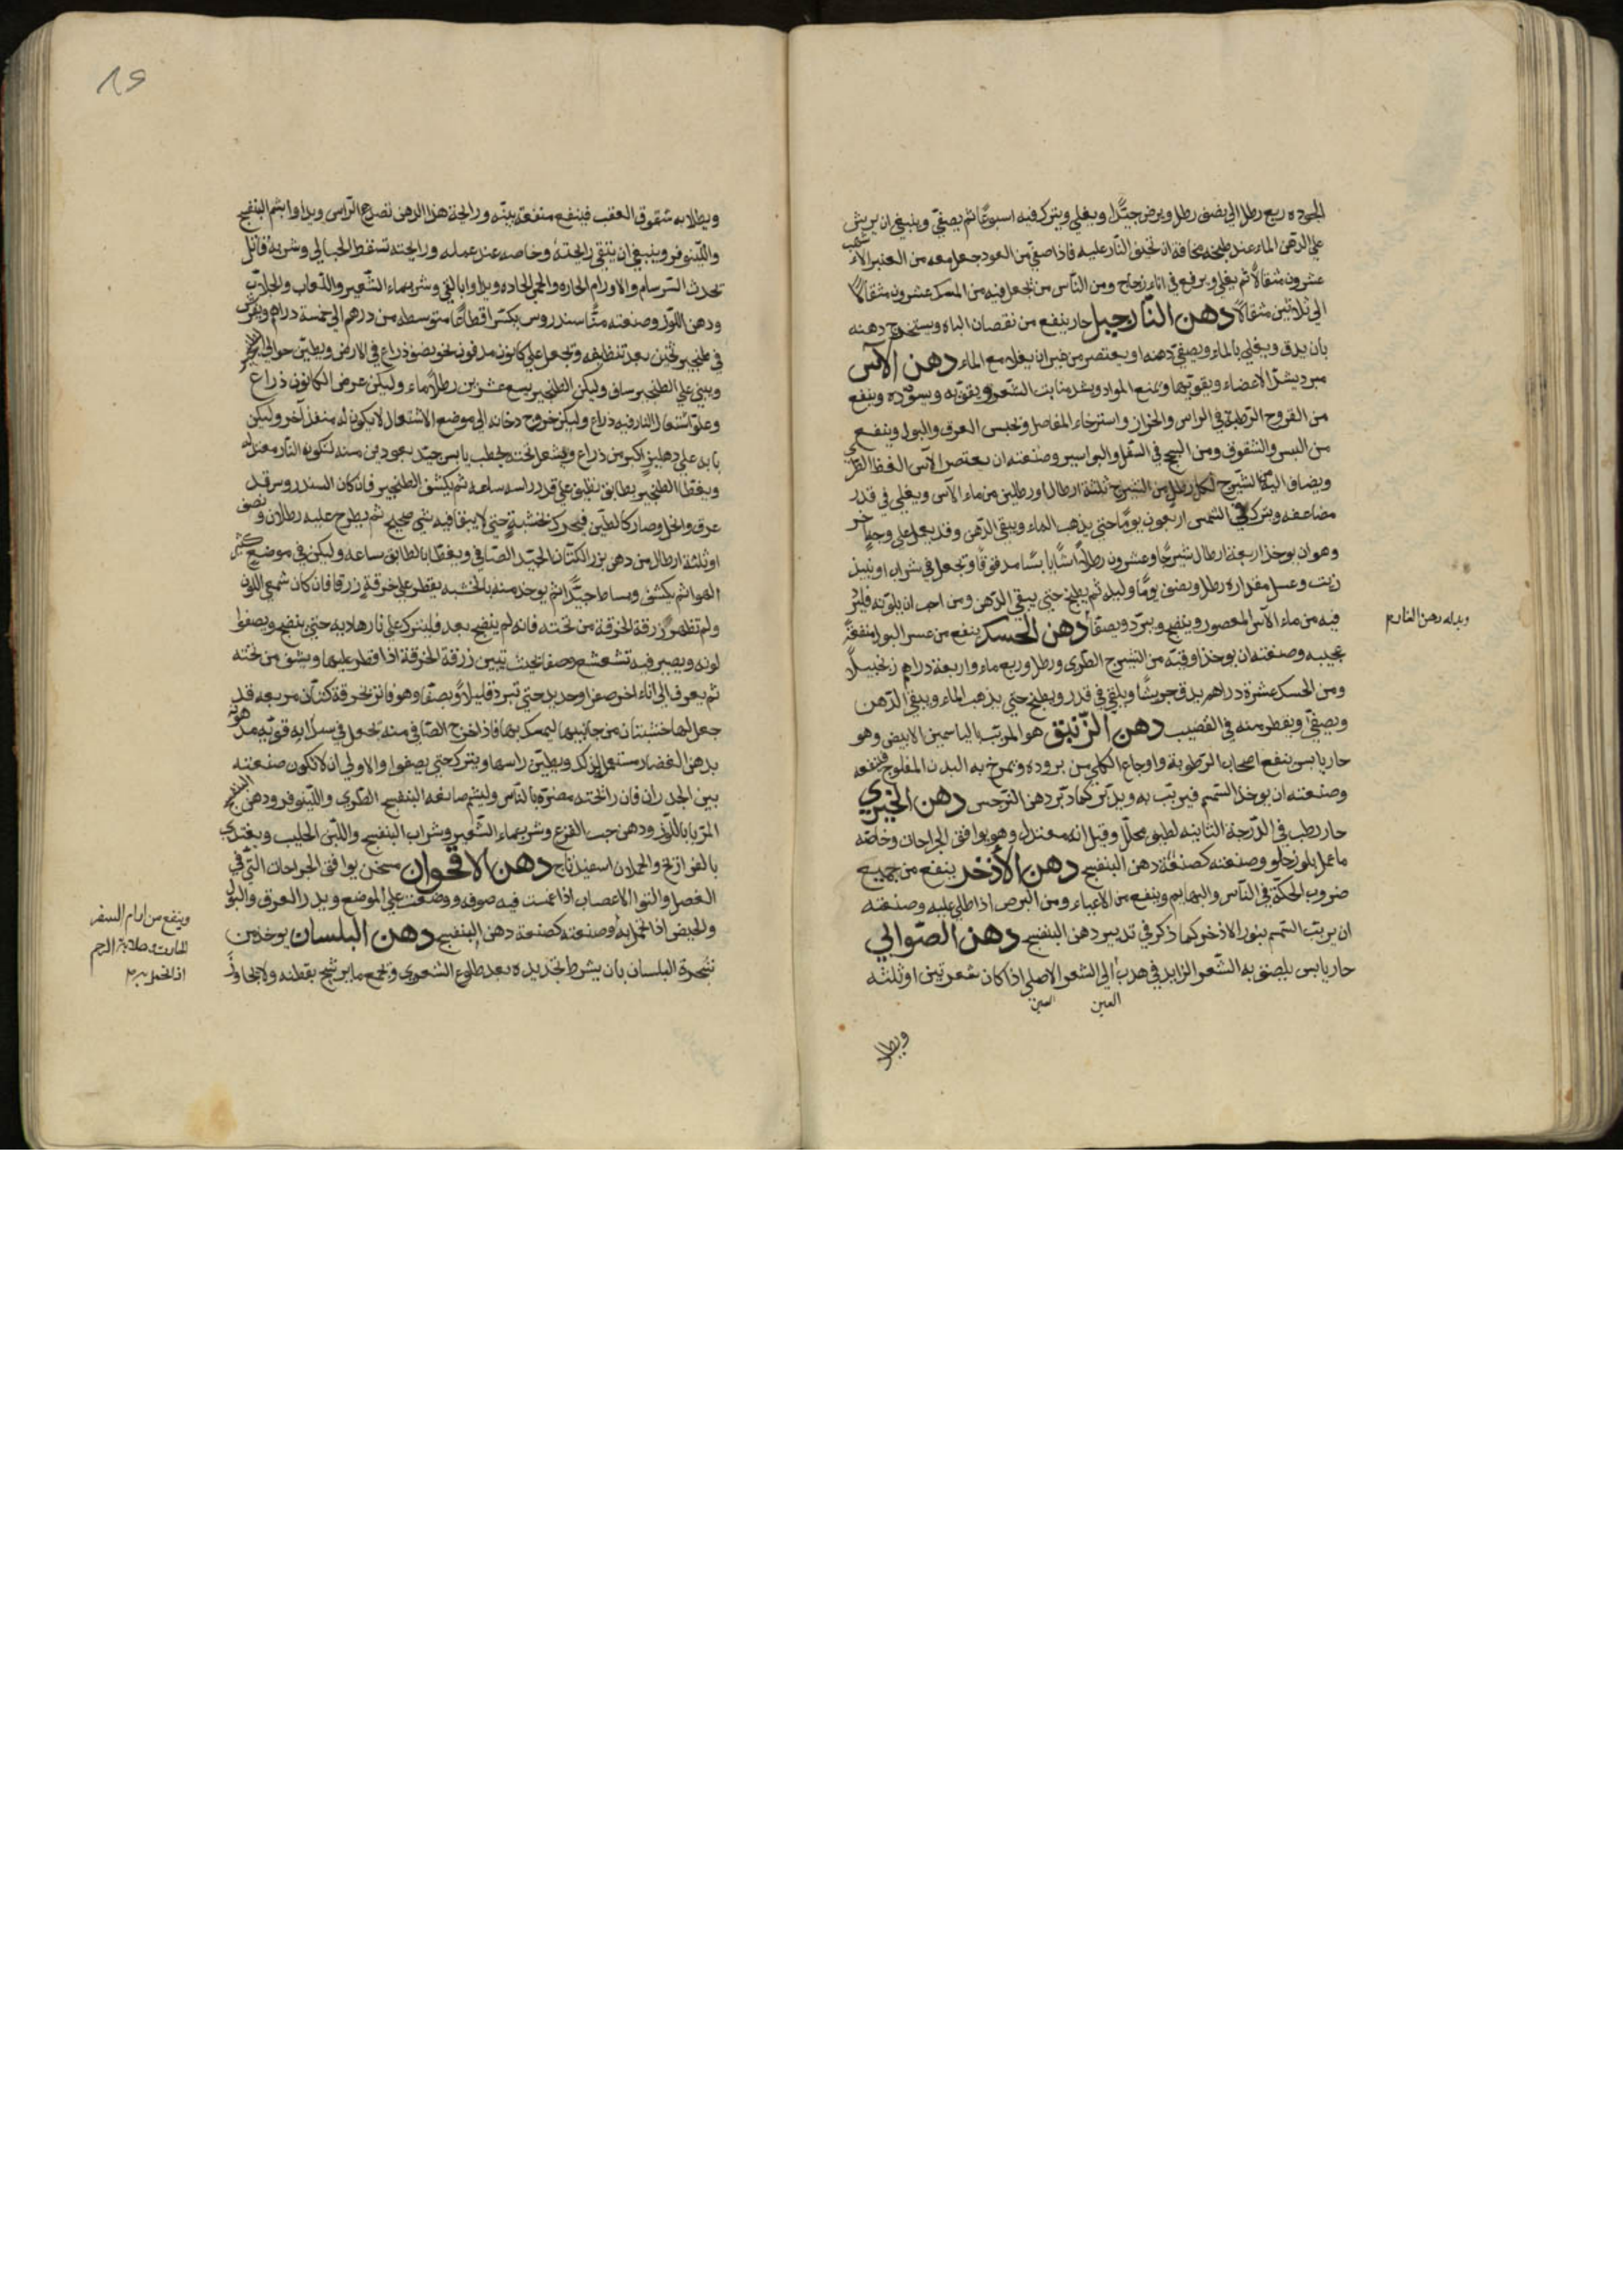 الجوده ربع رطل الى نصف رطل ويرض جيّدًا ويغلي ويترك فيه اسبوعًا ثم يصفّي وينبغي ان يرش
علي الدّهن الماء عند طبخه مخافة ان تحتف النّار عليه فاذا صفي من العود جعل معه من العنبر الاشهب
عشرون مثقالاً ثم يغلي ويرفع في اناء زجاج ومن النّاس من يجعل فيه من المسك عشرون مثقالاً
الي ثلاثين مثقالاً دهن النّارجيل حار ينفع من نقصان الباه ويستخرج دهنه
بأن يدق ويغلي بالماء ويصفي دهنه او يعتصر من غير ان يغلا مع الماء دهن الآس
مبرد يشدّ الاعضاء ويقويها ويمنع المواد ويشد منابت الشّعر ويقويه ويسوّده وينفع
من القروح الرّطبة في الراس والحزاز واسترخاء المفاصل ويحبس العرق والبول وينفع
من اليبس والشقوق ومن السحج في السّفل والبواسير وصنعته ان يعتصر الآس الغض الطري
ويضاف اليه الشيرج لكل رطل من الشيرج ثلثة ارطال او رطلين من ماء الآس ويغلي في قدر
مضاعفه ويترك في الشمس اربعون يومًا حتي يذهب الماء ويبقي الدّهن وقد يعمل علي وجه آخر
وهو ان يوخذ اربعة ارطال شيرجًا وعشرون رطلاً آسًا يابسًا مدقوقًا وتجعل في شراب او نبيذ
زبيب وعسل مقداره رطل ونصف يومًا وليله ثم يطبخ حتي يبقي الدّهن ومن احب ان يلوّنه فليزد
فيه من ماء الآس المعصور وينضج ويبرّد ويصفّا دهن الحسك ينفع من عسر البول منفعة
عجيبه وصنعته ان يوخذ اوقيّه من الشيرج الطّري ورطل وربع ماء واربعة دراهم زنجبيلاً
ومن الحسك عشرة دراهم يدق جريشًا ويلقي في قدر ويطبخ حتي يذهب الماء ويبقي الدّهن
ويصفّا ويقطر منه في القضيب دهن الزّنبق هو المربّب بالياسمين الابيض وهو
حار يابس ينفع اصحاب الرّطوبة واوجاع الكلي من بروده ويمرخ به البدن المفلوج فينفعه
وصنعته ان يوخذ السّمسم فيربّب به ويدبّر كما دبّر دهن النّرجس دهن الخيري
حار رطب في الدّرجة الثانيه لطيف محلّل وقيل انه معتدل وهو يوافق الجراحات وخاصّه
ما عمل بلوز حلو وصنعته كصنعة دهن البنفسج دهن الأذخر ينفع من جميع
ضروب الحكّة في النّاس والبهايم وينفع من الاعياء ومن البرص اذا طلي عليه وصنعته
ان يربّب السّمسم بنور الاذخر كما ذكر في تدبير دهن البنفسج دهن الصّوالي
حار يابس يلصق به الشّعر الزايد في هدب الي الشعر الاصلي اذا كان شعرتين او ثلثه
العين
العين
ويطلا
ويطلا به شقوق العقب فينفع منفعة بيّنه ورايحة هذا الدهن تصدع الرّاس ويداوا بشم البنفسج
واللّينوفر وينبغي ان يتقي رايحته وخاصه عند عمله ورايحته تسقط الحبالي وشربه قاتل
تحدث السّرسام والاورام الحاره والحمي الحاده ويداوا بالقي وشرب ماء الشّعير واللّعاب والجلاب
ودهن اللّوز وصنعته منًّا سندروس يكسّر اقطاعًا متوسطه من درهم الي خمسة دراهم ويفرش
في طنجير ثخين بعد تنظيفه وتجعل علي كانون مدفون نحو نصف ذراع في الارض ويطيّن حوالي الطنجير
ويبني علي الطنجير ساف وليكن الطنجير يسع عشرين رطلاً ماء وليكن عرض الكانون ذراع
وعلو اشتعال النار فيه ذراع وليكن خروج دخانه الي موضع الاشتعال لا يكون له منفذ آخر وليكن
بابه علي دهليز اكبر من ذراع ويشعل تحته بحطب يابس جيّد بعودين منه لتكون النّار معتدله
ويغطّا الطنجير بطابق نظيف علي قدر راسه ساعه ثم يكشف الطنجير فان كان السندروس قد
عرق وانحل وصار كالطّين فيحرك بخشبة حتي لا يبقا فيه شي صحيح ثم يطرح عليه رطلان ونصف
او ثلثة ارطال من دهن بزر الكتّان الجيّد الصّافي ويغطّا بالطابق ساعه وليكن في موضع كثير
الهوا ثم يكشف ويساط جيّدًا ثم يوخذ منه بالخشبه يقطر علي خرقة زرقا فان كان شمعي اللّون
ولم تظهر زرقة الخرقة من تحته فانه لم ينضج بعد فليترك علي نار هاديه حتي ينضج ويصفوا
لونه ويصير فيه تشعشع وصفا بحيث تبين زرقة الخرقة اذا قطر عليها ويشف من تحته
ثم يغرف الي اناء اخر صفر او حديد حتي تبرد قليلاً ويصفّا وهو فاتر بخرقة كتّان مربعه قد
جعل لها خشبتان من جانبيها ليمسك بهما فاذا خرج الصّافي منه تجعل في سرابه قويه مدهونة
بدهن الغضار مستعمل لذلك ويطيّن راسها ويترك حتي يصفوا والاولي ان لا تكون صنعته
بين الجدران فان رائحته مضرّه بالنّاس وليشم صانعه البنفسج الطّري واللّينوفر ودهن البنفسج
المربا باللّوز ودهن حب القرع وشرب ماء الشّعير وشراب البنفسج واللّبن الحليب ويغتدي
بالفراريج والحملان اسفيذباج دهن الاقحوان مسخن يوافق الجراحات الّتي في
العضل والتوا الاعصاب اذا غمست فيه صوفه ووضعت علي الموضع ويدر العرق والبول
والحيض اذا تحمل به وصنعته كصنعة دهن البنفسج دهن البلسان يوخذ من
شجرة البلسان بأن يشرط بحديده بعد طلوع الشعري وتجمع ما يرشح بقطنه ولا يجاوز
وينفع من اورام السفل
الحارة وصلابة الرحم
اذا تحمل به